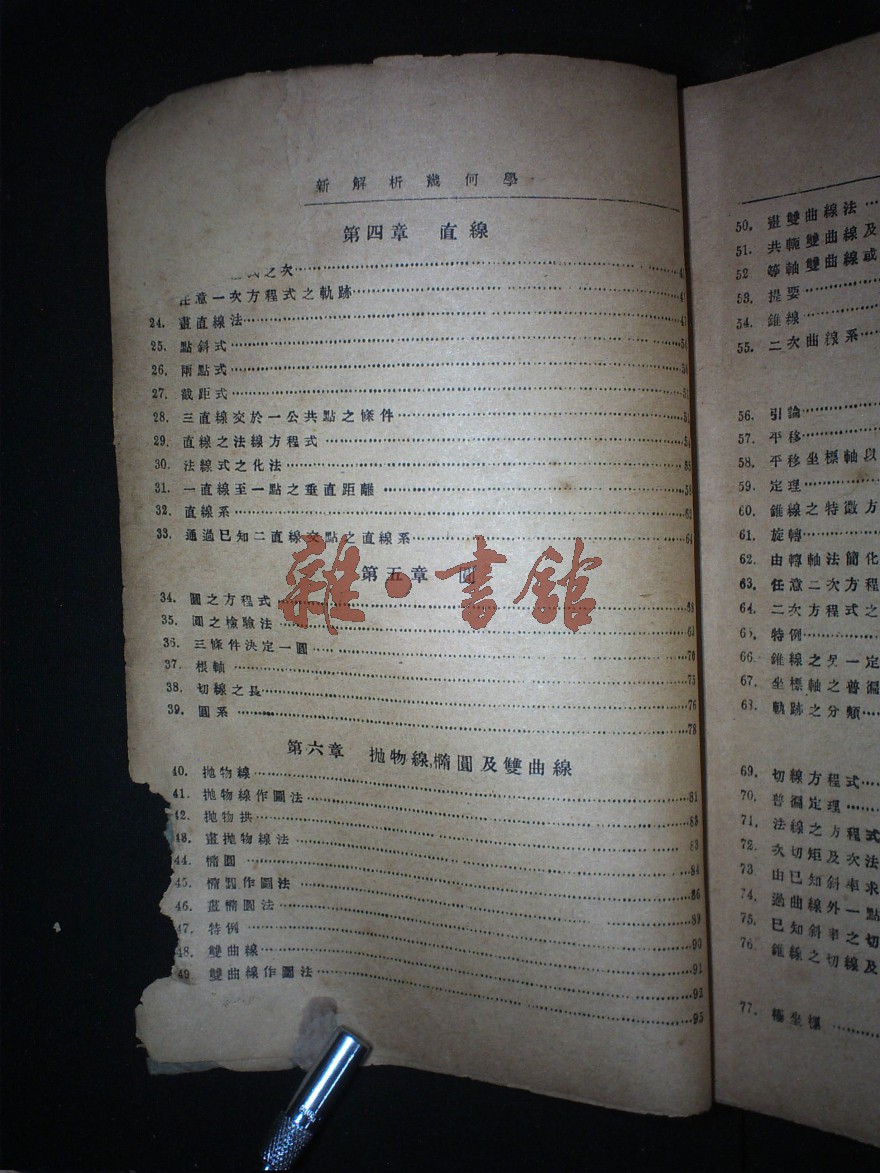 新解析幾何學
第四章 直線
式之次
任意一次方程式之軌跡
24. 畫直線法
25. 點斜式
26. 兩點式
27. 截距式
28. 三直線交於一公共點之條件
29. 直線之法線方程式
30. 法線式之化法
31. 一直線至一點之垂直距離
32. 直線系 62
33. 通過已知二直線交點之直線系 64
第五章 圓
34. 圓之方程式 68
35. 圓之檢驗法
36. 三條件決定一圓 70
37. 根軸 75
38. 切線之長 76
39. 圓系 78
第六章 拋物線,橢圓及雙曲線
40. 拋物線 81
41. 拋物線作圖法 83
42. 拋物拱 83
43. 畫拋物線法 84
44. 橢圓 86
45. 橢圓作圖法 89
46. 畫橢圓法 90
47. 特例 91
48. 雙曲線 93
49. 雙曲線作圖法 95
50. 畫雙曲線法
51. 共軛雙曲線及
52. 等軸雙曲線或
53. 提要
54. 錐線
55. 二次曲線系
56. 引論
57. 平移
58. 平移坐標軸以
59. 定理
60. 錐線之特徵方
61. 旋轉
62. 由轉軸法簡化
63. 任意二次方程
64. 二次方程式之
65. 特例
66. 錐線之另一定
67. 坐標軸之普遍
68. 軌跡之分類
69. 切線方程式
70. 普遍定理
71. 法線之方程式
72. 次切距及次法
73. 由已知斜率求
74. 過曲線外一點
75. 已知斜率之切
76. 錐線之切線及
77. 極坐標
雜·書館